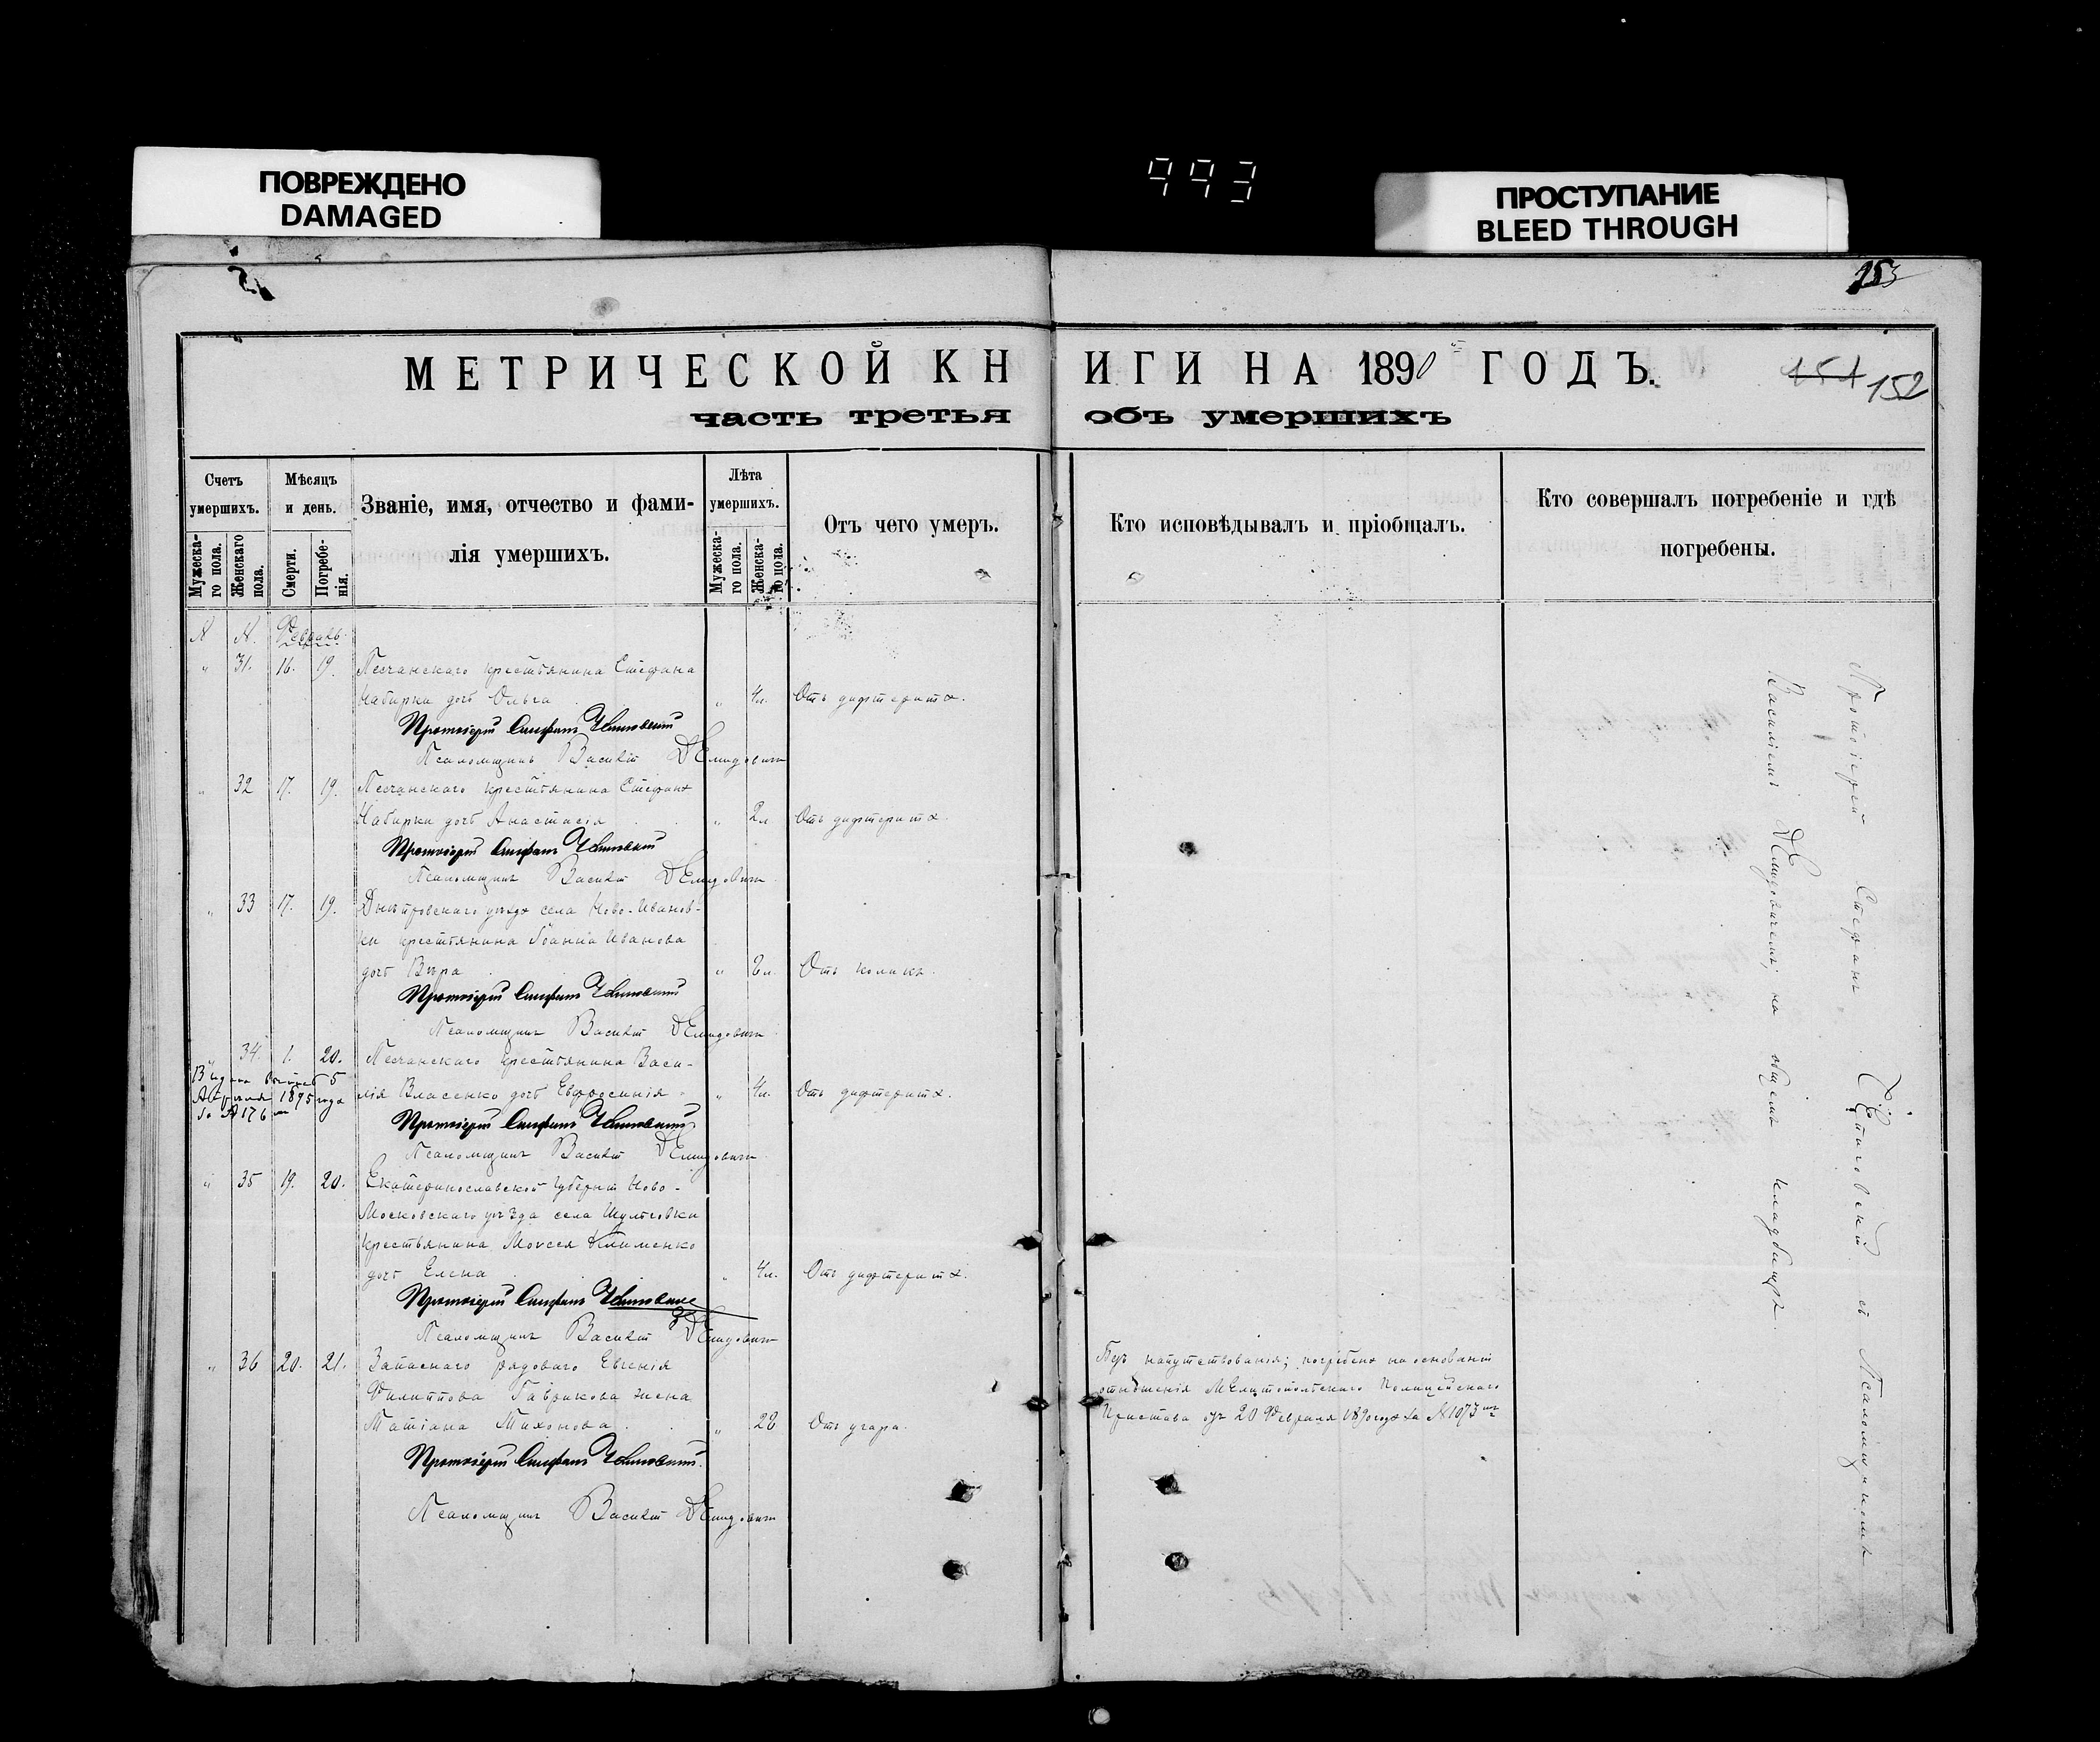 ПОВРЕЖДЕНО
DAMAGED
993
ПРОСТУПАНИЕ
BLEED THROUGH
153
МЕТРИЧЕСКОЙ КНИГИ НА 1890 ГОДЪ.
151 152
часть третья объ умершихъ
Счетъ умершихъ.
Мужеска-
го пола.
Женскаго
пола.
Мѣсяцъ
и день.
Смерти.
Погребе-
нія.
Званіе, имя, отчество и фами-
лія умершихъ.
Лѣта
умершихъ.
Мужеска-
го пола.
Женска-
го пола.
Отъ чего умеръ.
Кто исповѣдывалъ и пріобщалъ.
Кто совершалъ погребеніе и гдѣ
погребены.
№ №. Февраль.
" 31. 16. 19. Песчанскаго крестьянина Стефана
Чабирка дочь Ольга " 4л. Отъ дифтерита.
Протоіерей Стефанъ
Псаломщикъ Василій Демидовичъ
" 32 17. 19. Песчанскаго крестьянина Стефана
Чабирки дочь Анастасія " 2л Отъ дифтерита.
Протоіерей Стефанъ
Псаломщикъ Василій Демидовичъ
" 33 17. 19. Днѣпровскаго уѣзда села Ново-Иванов-
ки крестьянина Іоанна Иванова
дочь Вѣра " л. Отъ колики.
Протоіерей Стефанъ
Псаломщикъ Василій Демидовичъ
" 34. 1. 20. Песчанскаго крестьянина Васи-
лія Власенко дочь Евфросинія " 4л. Отъ дифтерита.
5
Апрѣля 1895 года
за № 176
Протоіерей Стефанъ
Псаломщикъ Василій Демидовичъ
" 35 19. 20. Екатеринославской губерніи Ново-
Московскаго уѣзда села Шульговки
крестьянина Моисея Клименко
дочь Елена " 4л. Отъ дифтерита.
Протоіерей Стефанъ
Псаломщикъ Василій Демидовичъ
" 36 20. 21. Запаснаго рядоваго Евгенія
Филиппова Гаврикова жена
Татіана Тихонова " 22 Отъ угара.
Протоіерей Стефанъ
Псаломщикъ Василій Демидовичъ
Безъ напутствованія; погребена на основаніи
отношенія Мелитопольскаго Полицейскаго
Пристава отъ 20 Февраля 1890 года за №1073
Протоіерей Стефанъ съ Псаломщикомъ
Василіемъ Демидовичемъ; на общемъ кладбищѣ.